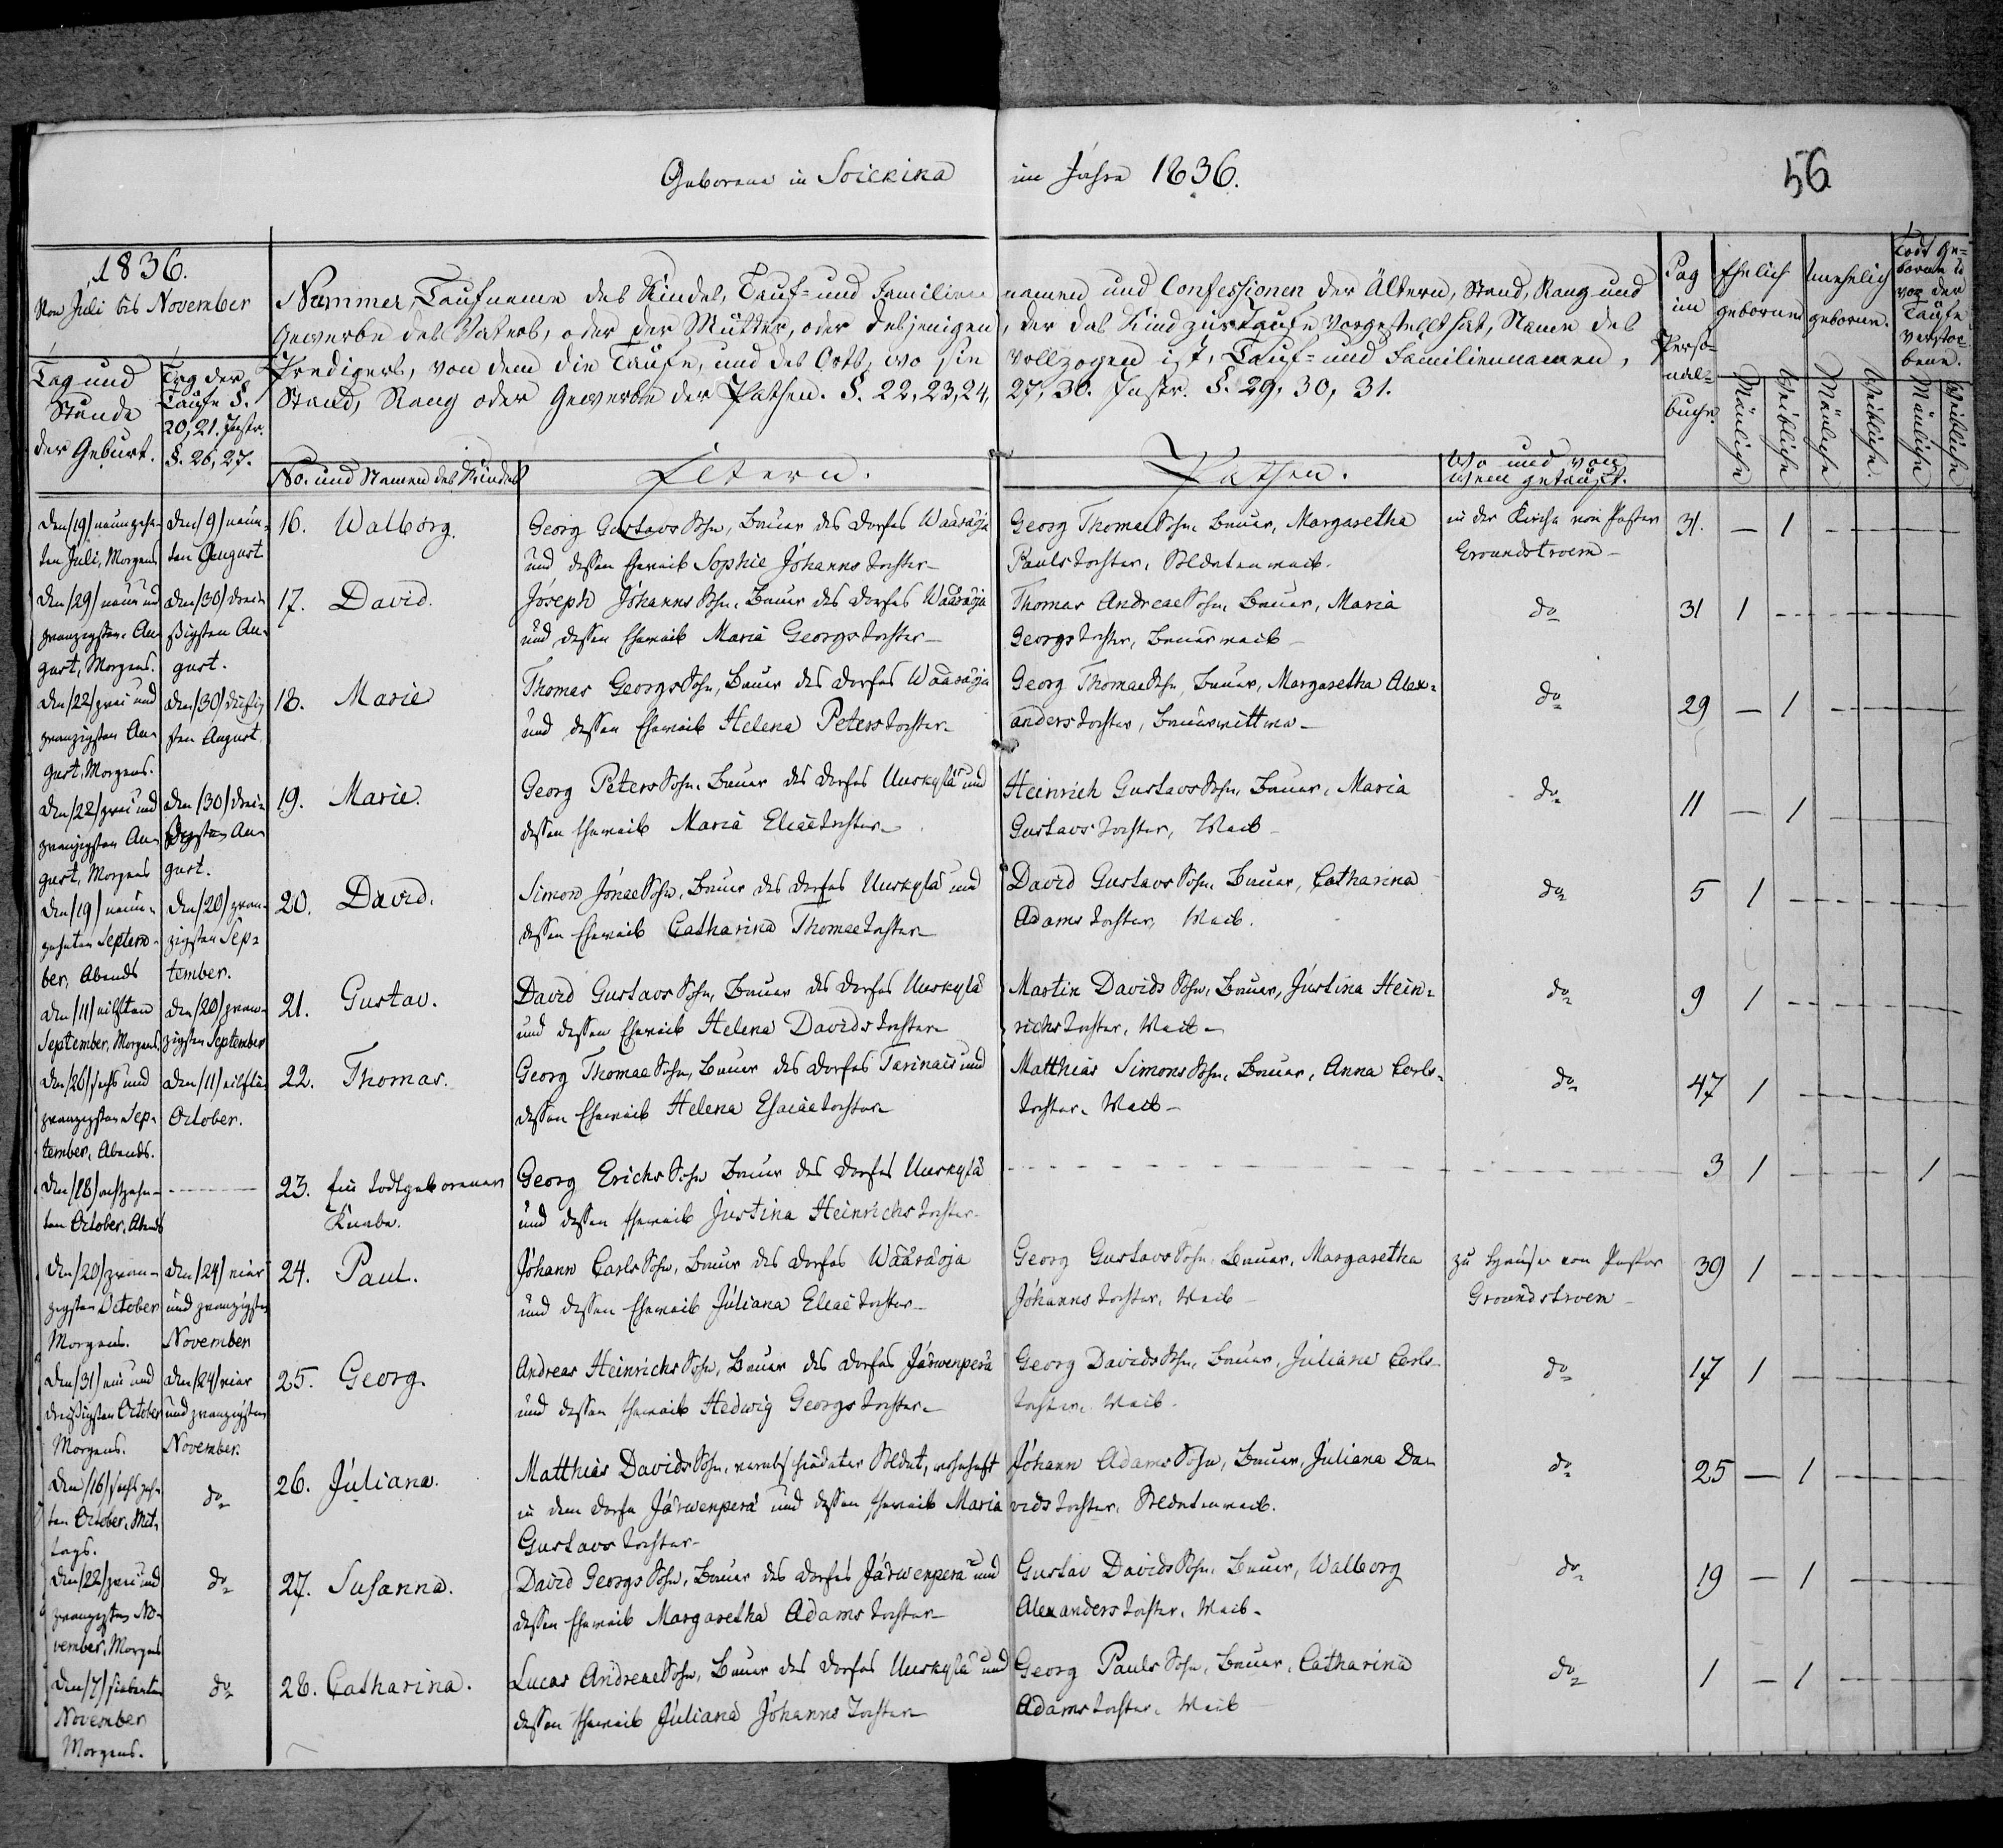 Geborene in Soickina im Jahre 1836. 56
1836.
Von Juli bis November
Tag und
Stunde
der Geburt.
Tag der
Taufe §.
20, 21. Instr.
§. 26, 27.
Nummer, Taufname des Kindes, Tauf- und Familien namen und Confessionen der Ältern, Stand, Rang und
Gewerbe des Vaters, oder der Mutter, oder desjenigen, der das Kind zur Taufe vorgestellt hat, Name des
Predigers, von dem die Taufe, und des Orts, wo sie vollzogen ist, Tauf- und Familiennamen,
Stand, Rang oder Gewerbe der Pathen. §. 22, 23, 24, 27, 30. Instr. §. 29, 30, 31.
No. und Namen des Kindes
Eltern.
Pathen.
Wo und von
wem getauft.
Pag
im
Perso-
nal-
buche.
Ehelich
geborene
Unehelich
geborene.
Todt Ge-
borene u
vor der
Taufe
verstor-
bene.
Mänliche
Weibliche
Mänliche
Weibliche
Mänliche
Weibliche
den (19) neunzehn-
ten Juli, Morgens
den (9) neun-
ten August
16. Walborg.
Georg Gustavs Sohn, Bauer des Dorfes Wääräoja
und dessen Eheweib Sophie Johanns Tochter
Georg Thomae Sohn, Bauer, Margaretha
Pauls Tochter, Soldatenweib.
in der Kirche von Pastor
Groundstroem
31. — 1
den (29) neun und
zwanzigsten Au-
gust, Morgens.
den (30) drei-
ßigsten Au-
gust.
17. David.
Joseph Johanns Sohn, Bauer des Dorfes Wääräoja
und dessen Eheweib Maria Georgs Tochter
Thomas Andreae Sohn, Bauer, Maria
Georgs Tochter, Bauerweib
do
31 1
den (22) zwei und
zwanzigsten Au-
gust, Morgens.
den (30) dreißig-
sten August.
18. Marie
Thomas Georgs Sohn, Bauer des Dorfes Wääräoja
und dessen Eheweib Helena Peters Tochter
Georg Thomae Sohn, Bauer, Margaretha Alex-
anders Tochter, Bauerwittwe
do
29 — 1
den (22) zwei und
zwanzigsten Au-
gust, Morgens
den (30) drei-
ßigsten Au-
gust.
19. Marie.
Georg Peters Sohn, Bauer des Dorfes Uuskylä und
dessen Eheweib Maria Eliae Tochter
Heinrich Gustavs Sohn, Bauer, Maria
Gustavs Tochter, Weib
do
11 — 1
den (19) neun-
zehnten Septem-
ber, Abends
den (20) zwan-
zigsten Sep-
tember.
20. David.
Simon Jonae Sohn, Bauer des Dorfes Uuskylä und
dessen Eheweib Catharina Thomae Tochter
David Gustavs Sohn, Bauer, Catharina
Adams Tochter, Weib.
do
5 1
den (11) eilften
September, Morgens.
den (20) zwan-
zigsten September
21. Gustav.
David Gustavs Sohn, Bauer des Dorfes Uuskylä
und dessen Eheweib Helena Davids Tochter
Martin Davids Sohn, Bauer, Justina Hein-
richs Tochter, Weib
do
9 1
den (26) sechs und
zwanzigsten Sep-
tember, Abends.
den (11) eilften
October.
22. Thomas.
Georg Thomae Sohn, Bauer des Dorfes Tarinais und
dessen Eheweib Helena Esaiae Tochter
Matthias Simons Sohn, Bauer, Anna Carls-
Tochter, Weib
do
47 1
den (18) achtzehn-
ten October, Abends
23. Ein todtgeborener
Knabe.
Georg Erichs Sohn Bauer des Dorfes Uuskylä
und dessen Eheweib Justina Heinrichs Tochter
3 1 — 1
den (20) zwan-
zigsten October
Morgens.
den (24) vier
und zwanzigsten
November
24. Paul.
Johann Carls Sohn, Bauer des Dorfes Wääräoja
und dessen Eheweib Juliana Eliae Tochter
Georg Gustavs Sohn, Bauer, Margaretha
Johanns Tochter, Weib
zu Hause von Pastor
Groundstroem
39 1
den (31) ein und
dreißigsten October
Morgens.
den (24) vier
und zwanzigsten
November.
25. Georg.
Andreas Heinrichs Sohn, Bauer des Dorfes Järwenperä
und dessen Eheweib Hedwig Georgs Tochter
Georg Davids Sohn, Bauer, Juliane Carls-
Tochter, Weib.
do
17 1
den (16) sechszehn-
ten October, Mit-
tags.
do
26. Juliana.
Matthias Davids Sohn, verabschiedeter Soldat, wohnhaft
in dem Dorfe Järwenperä und dessen Eheweib Maria
Gustavs Tochter
Johann Adams Sohn, Bauer, Juliana Da-
vids Tochter, Soldatenweib.
do
25 — 1
den (22) zwei und
zwanzigsten No-
vember, Morgens
do
27. Susanna.
David Georgs Sohn, Bauer des Dorfes Järwenperä und
dessen Eheweib Margaretha Adams Tochter
Gustav Davids Sohn, Bauer, Walborg
Alexanders Tochter, Weib.
do
19 — 1
den (7) siebenten
November
Morgens.
do
28. Catharina.
Lucas Andreae Sohn, Bauer des Dorfes Uuskylä und
dessen Eheweib Juliana Johanns Tochter
Georg Pauls Sohn, Bauer, Catharina
Adams Tochter, Weib
do
1 — 1